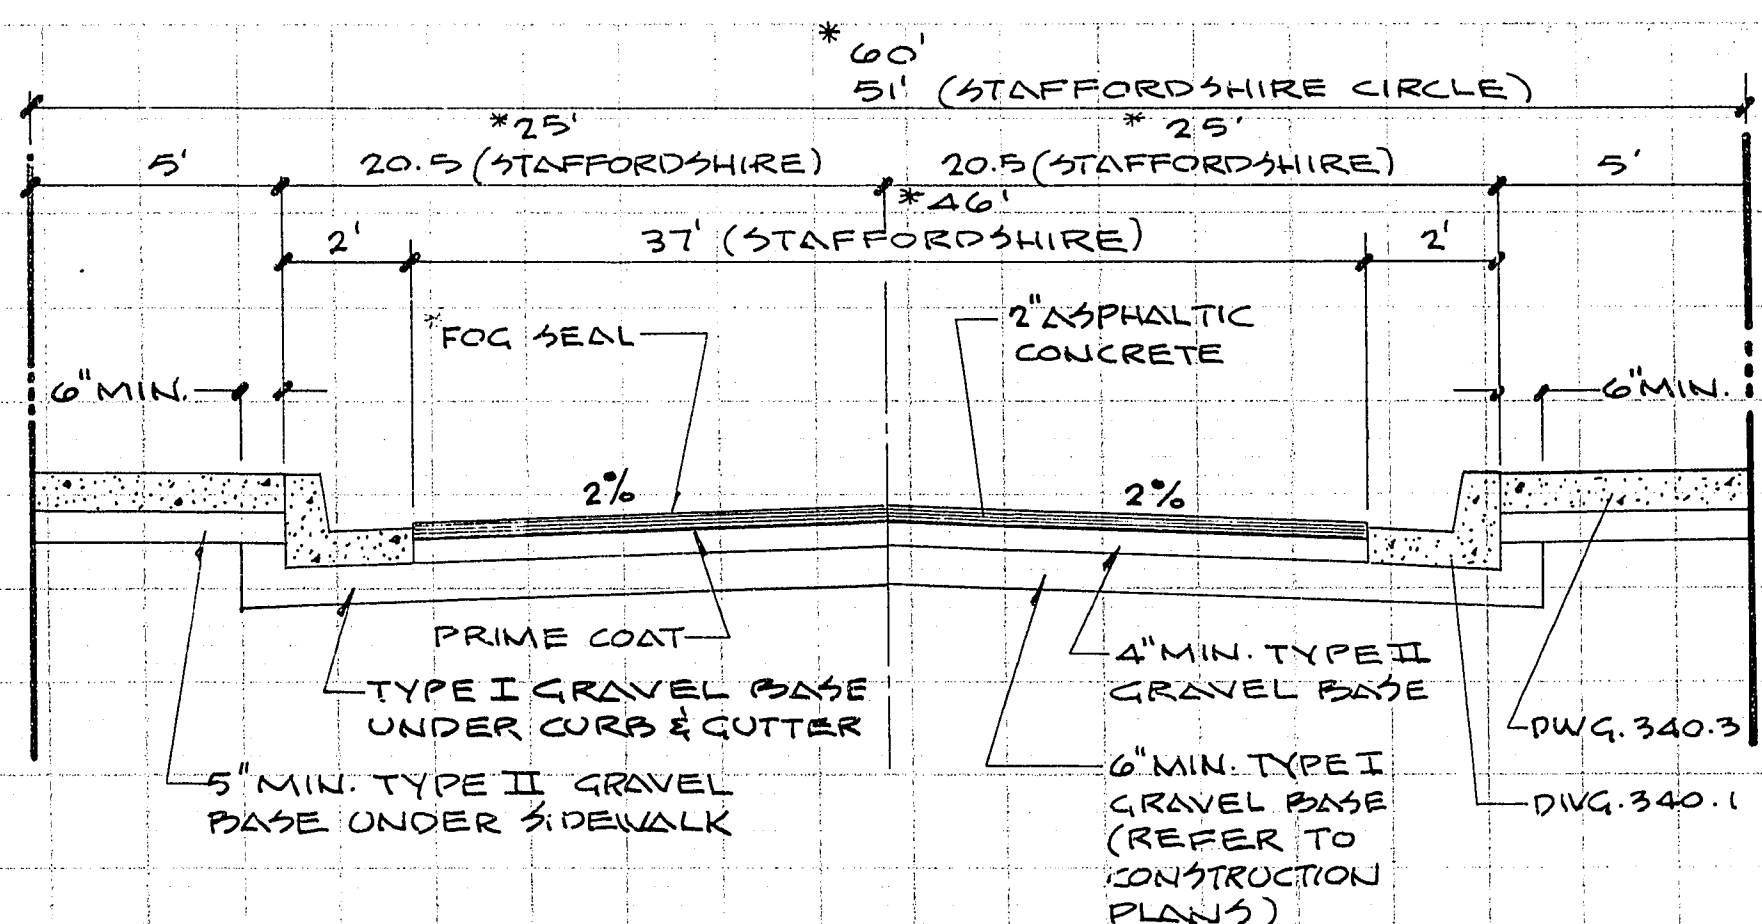 * 60'
51' (STAFFORDSHIRE CIRCLE)
* 25'
* 25'
5'
20.5 (STAFFORDSHIRE)
20.5 (STAFFORDSHIRE)
5'
* 46'
2'
37' (STAFFORDSHIRE)
2'
*FOG SEAL
2" ASPHALTIC
CONCRETE
6" MIN.
6" MIN.
2%
2%
PRIME COAT
TYPE I GRAVEL BASE
UNDER CURB & GUTTER
5" MIN. TYPE II GRAVEL
BASE UNDER SIDEWALK
4" MIN. TYPE II
GRAVEL BASE
6" MIN. TYPE I
GRAVEL BASE
(REFER TO
CONSTRUCTION
PLANS)
DWG. 340.3
DWG. 340.1